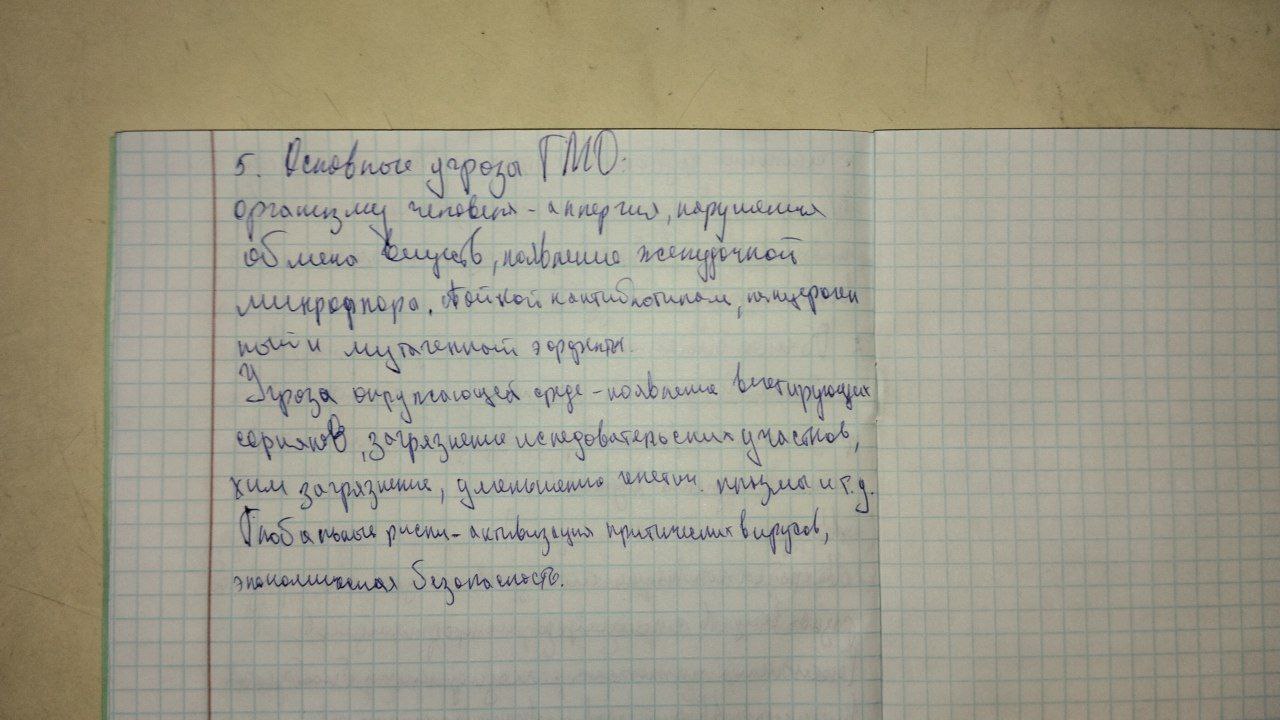 5. Основные угрозы ГМО.
организму человека - аллергия, нарушения
обмена веществ, появление желудочной
микрофлора, стойкой к антибиотикам, канцероген
ный и мутагенный эффекты.
Угроза окружающей среде - появление вегетирующих
сорняков, загрязнение исследовательских участков,
хим загрязнение, уменьшение генетич. плазмы и т.д.
Глобальные риски - активизация критических вирусов,
экономическая безопасность.